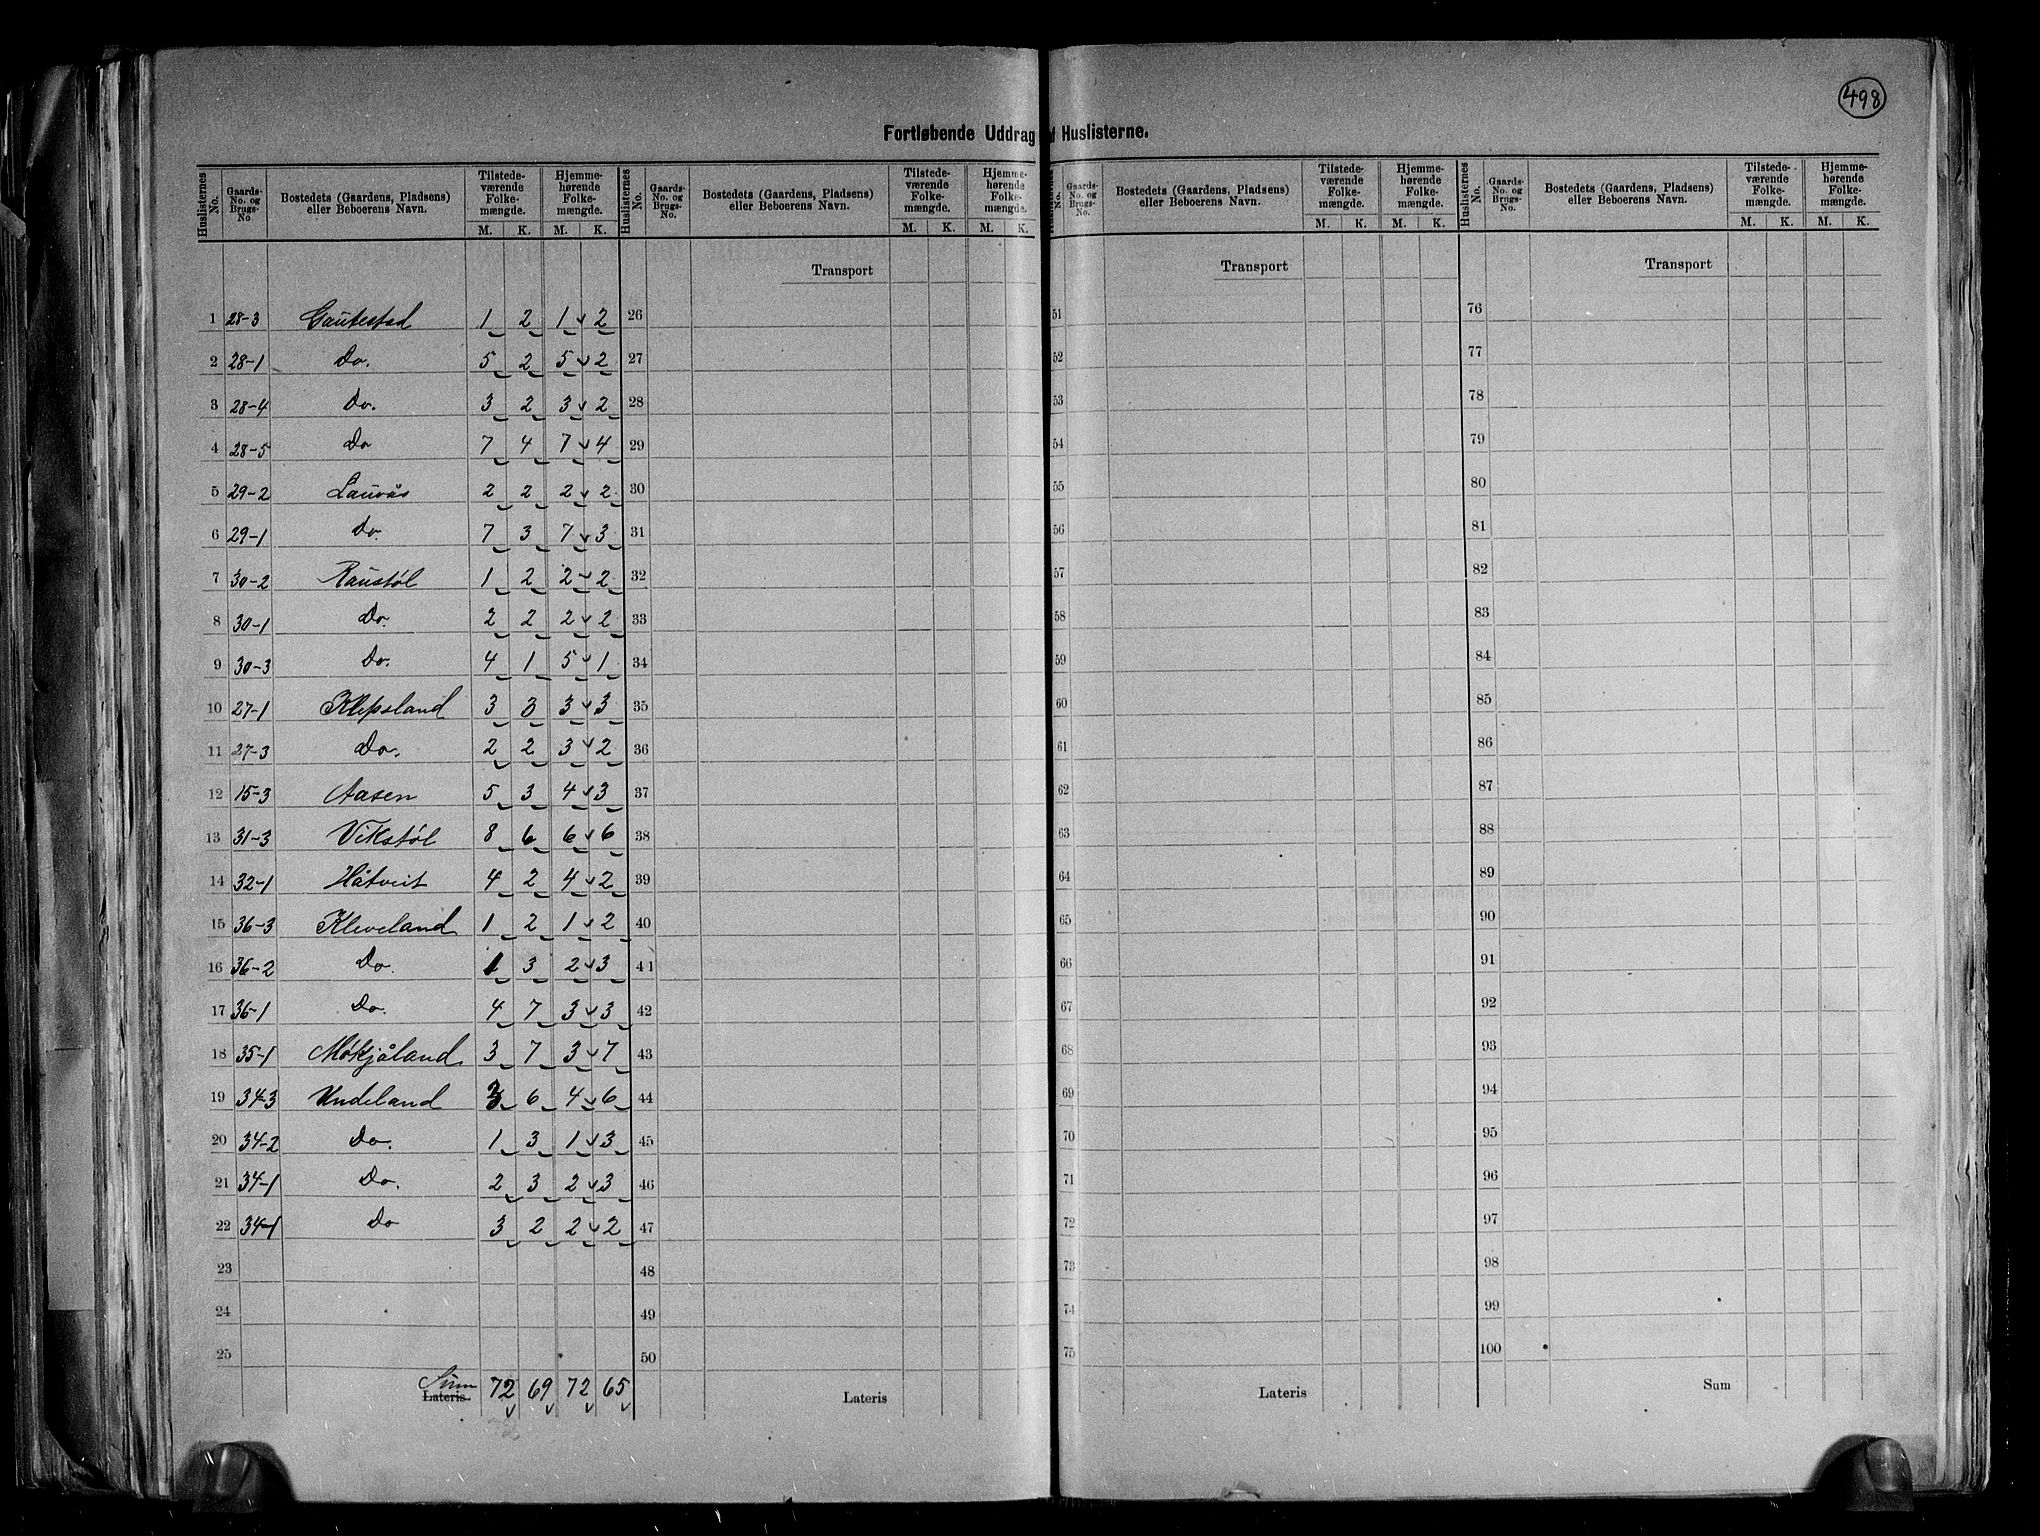 498
Fortløbende Uddrag af Huslisterne.
Huslisternes No. | Gaards-No. og Brugs-No | Bostedets (Gaardens, Pladsens) eller Beboerens Navn. | Tilstedeværende Folkemængde. M. K. | Hjemmehørende Folkemængde. M. K.
1 28-3 Gautestad 1 2 1 2
2 28-1 Do. 5 2 5 2
3 28-4 Do. 3 2 3 2
4 28-5 Do 7 4 7 4
5 29-2 Lauvås 2 2 2 2
6 29-1 Do. 7 3 7 3
7 30-2 Raustøl 1 2 2 2
8 30-1 Do. 2 2 2 2
9 30-3 Do. 4 1 5 1
10 27-1 Klepsland 3 3 3 3
11 27-3 Do. 2 2 3 2
12 15-3 Aasen 5 3 4 3
13 31-3 Vikstøl 8 6 6 6
14 32-1 Håtveit 4 2 4 2
15 36-3 Kleveland 1 2 1 2
16 36-2 Do. 1 3 2 3
17 36-1 Do. 4 7 3 3
18 35-1 Møkjåland 3 7 3 7
19 34-3 Undeland 3 6 4 6
20 34-2 Do. 1 3 1 3
21 34-1 Do. 2 3 2 3
22 34-1 Do 3 2 2 2
23
24
25
Sum Lateris 72 69 72 65
Huslisternes No. | Gaards-No. og Brugs-No. | Bostedets (Gaardens, Pladsens) eller Beboerens Navn. | Tilstedeværende Folkemængde. M. K. | Hjemmehørende Folkemængde. M. K.
Transport
26
27
28
29
30
31
32
33
34
35
36
37
38
39
40
41
42
43
44
45
46
47
48
49
50
Lateris
No. | Gaards-No. og Brugs-No. | Bostedets (Gaardens, Pladsens) eller Beboerens Navn. | Tilstedeværende Folkemængde. M. K. | Hjemmehørende Folkemængde. M. K.
Transport
51
52
53
54
55
56
57
58
59
60
61
62
63
64
65
66
67
68
69
70
71
72
73
74
75
Lateris
Huslisternes No. | Gaards-No. og Brugs-No. | Bostedets (Gaardens, Pladsens) eller Beboerens Navn. | Tilstedeværende Folkemængde. M. K. | Hjemmehørende Folkemængde. M. K.
Transport
76
77
78
79
80
81
82
83
84
85
86
87
88
89
90
91
92
93
94
95
96
97
98
99
100
Sum